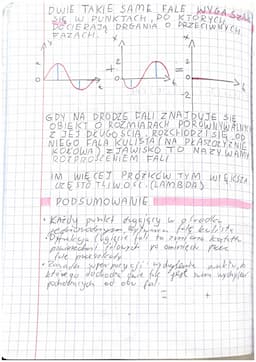 DWIE TAKIE SAME FALE WYGASZAJĄ
SIĘ W PUNKTACH, DO KTÓRYCH
DOCIERAJĄ DRGANIA O PRZECIWNYCH
FAZACH.
x x x
2
0 + 0 = 0
-2
GDY NA DRODZE FALI ZNAJDUJE SIĘ
OBIEKT O ROZMIARACH PORÓWNYWALNYCH
Z JEJ DŁUGOŚCIĄ, ROZCHODZI SIĘ OD
NIEGO FALA KULISTA (NA PŁASZCZYŹNIE
KOŁOWA) ZJAWISKO TO NAZYWAMY
ROZPROSZENIEM FALI
IM WIĘCEJ PRĄŻKÓW TYM WIĘKSZA
CZĘSTOTLIWOŚĆ (LAMBDA)
PODSUMOWANIE
• Każdy punkt drgający w ośrodku
jednorodnym wytwarza falę kulistą
• Dyfrakcja (ugięcie fali) to zmiana kształtu
powierzchni falowych po ominięciu przez
falę przeszkody
• Zasada superpozycji: wychylenie punktu, do
którego dochodzą dwie fale jest sumą wychyleń
pochodzących od obu fal.
= +